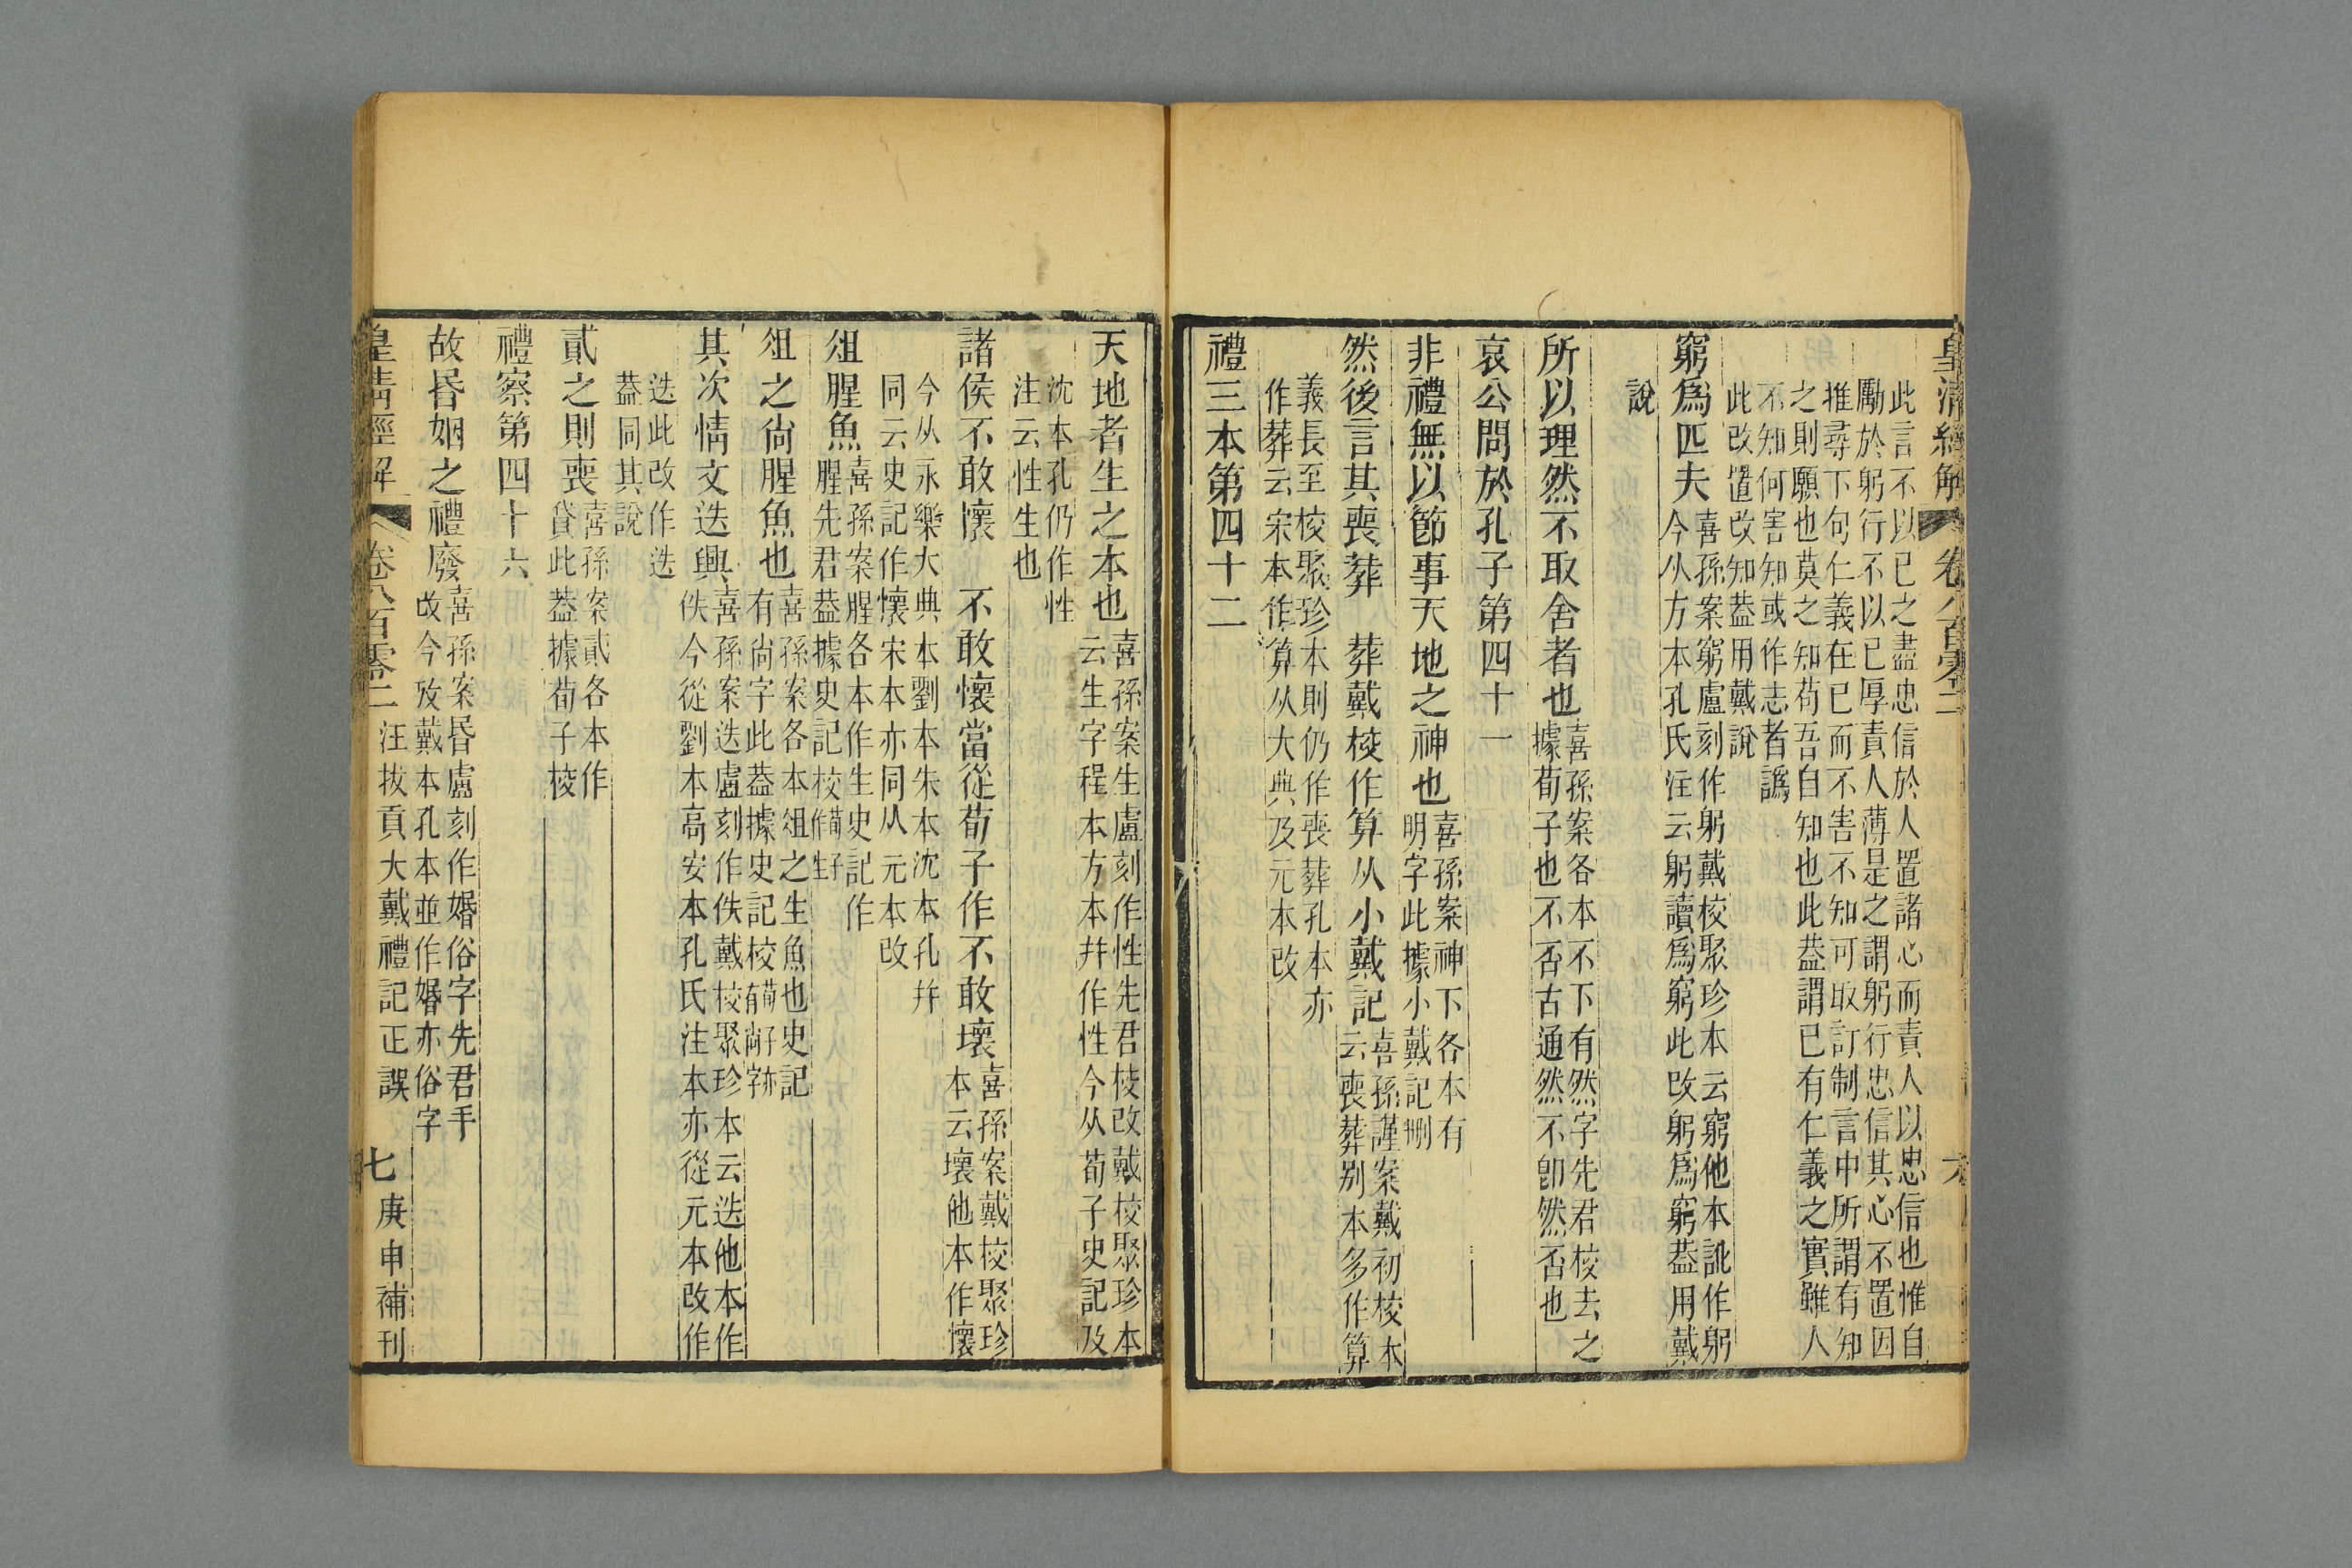 皇清經解 卷八百零二 六
此言不以已之盡忠信於人置諸心而責人以忠信也惟自
勵於躬行不以已厚責人薄是之謂躬行忠信其心不置因
推尋下句仁義在已而不害不知可取訂制言中所謂有知
之則願也莫之知苟吾自知也此葢謂已有仁義之實雖人
不知何害知或作志者譌
此改置改知葢用戴說
窮爲匹夫
喜孫案窮盧刻作躬戴校聚珍本云窮他本訛作躬
今从方本孔氏注云躬讀爲窮此改躬爲窮葢用戴
說
所以理然不取舍者也
喜孫案各本不下有然字先君校去之
據荀子也不否古通然不卽然否也
哀公問於孔子第四十一
非禮無以節事天地之神也
喜孫案神下各本有
明字此據小戴記刪
然後言其喪葬 葬戴校作算从小戴記
喜孫謹案戴初校本
云喪葬别本多作算
義長至校聚珍本則仍作喪葬孔本亦
作葬云宋本作算从大典及元本改
禮三本第四十二
天地者生之本也
喜孫案生盧刻作性先君校改戴校聚珍本
云生字程本方本幷作性今从荀子史記及
沈本孔仍作性
注云性生也
諸侯不敢懷 不敢懷當從荀子作不敢壞
喜孫案戴校聚珍
本云壞他本作懷
今从永樂大典本劉本朱本沈本孔幷
同云史記作懷宋本亦同从元本改
俎腥魚
喜孫案腥各本作生史記作
腥先君葢據史記校荀子作生
俎之尙腥魚也
喜孫案各本俎之生魚也史記
有尙字此葢據史記校荀子亦有尙字
其次情文迭興
喜孫案迭盧刻作佚戴校聚珍本云迭他本作
佚今從劉本高安本孔氏注本亦從元本改作
迭此改作迭
葢同其說
貳之則喪
喜孫案貳各本作
貸此葢據荀子校
禮察第四十六
故昏姻之禮廢
喜孫案昏盧刻作婚俗字先君手
改今攷戴本孔本並作婚亦俗字
皇清經解 卷八百零二 汪拔貢大戴禮記正誤 七 庚申補刊